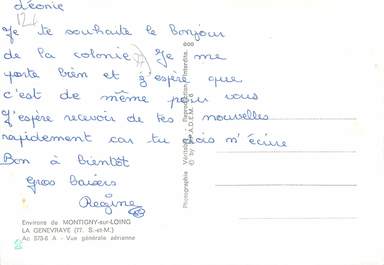 Léonie
Je te souhaite le bonjour
de la colonie Je me
porte bien et j'espère que
c'est de même pour vous
J'espère recevoir de tes nouvelles
rapidement car tu dois m'écrire
Bon à bientôt
Gros baisers
Regine
Environs de MONTIGNY-sur-LOING
LA GENEVRAYE (77. S.-et-M.)
Ac 573-6 A - Vue générale aérienne
Photographie Véritable - Reproduction Interdite.